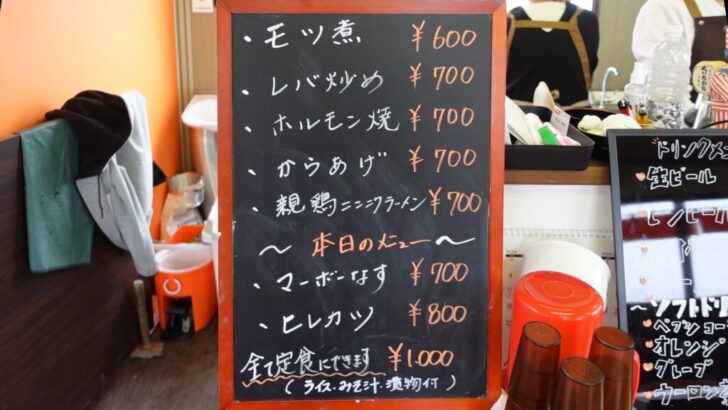 ・モツ煮 ¥600
・レバ炒め ¥700
・ホルモン焼 ¥700
・からあげ ¥700
・親鶏ニンニクラーメン ¥700
～本日のメニュー～
・マーボーなす ¥700
・ヒレカツ ¥800
全て定食にできます ¥1.000
（ライス・みそ汁・漬物付）
ドリンクメ
生ビール
ビンビール
～ソフトドリ
ペプシコー
オレンジ
グレープ
ウーロン